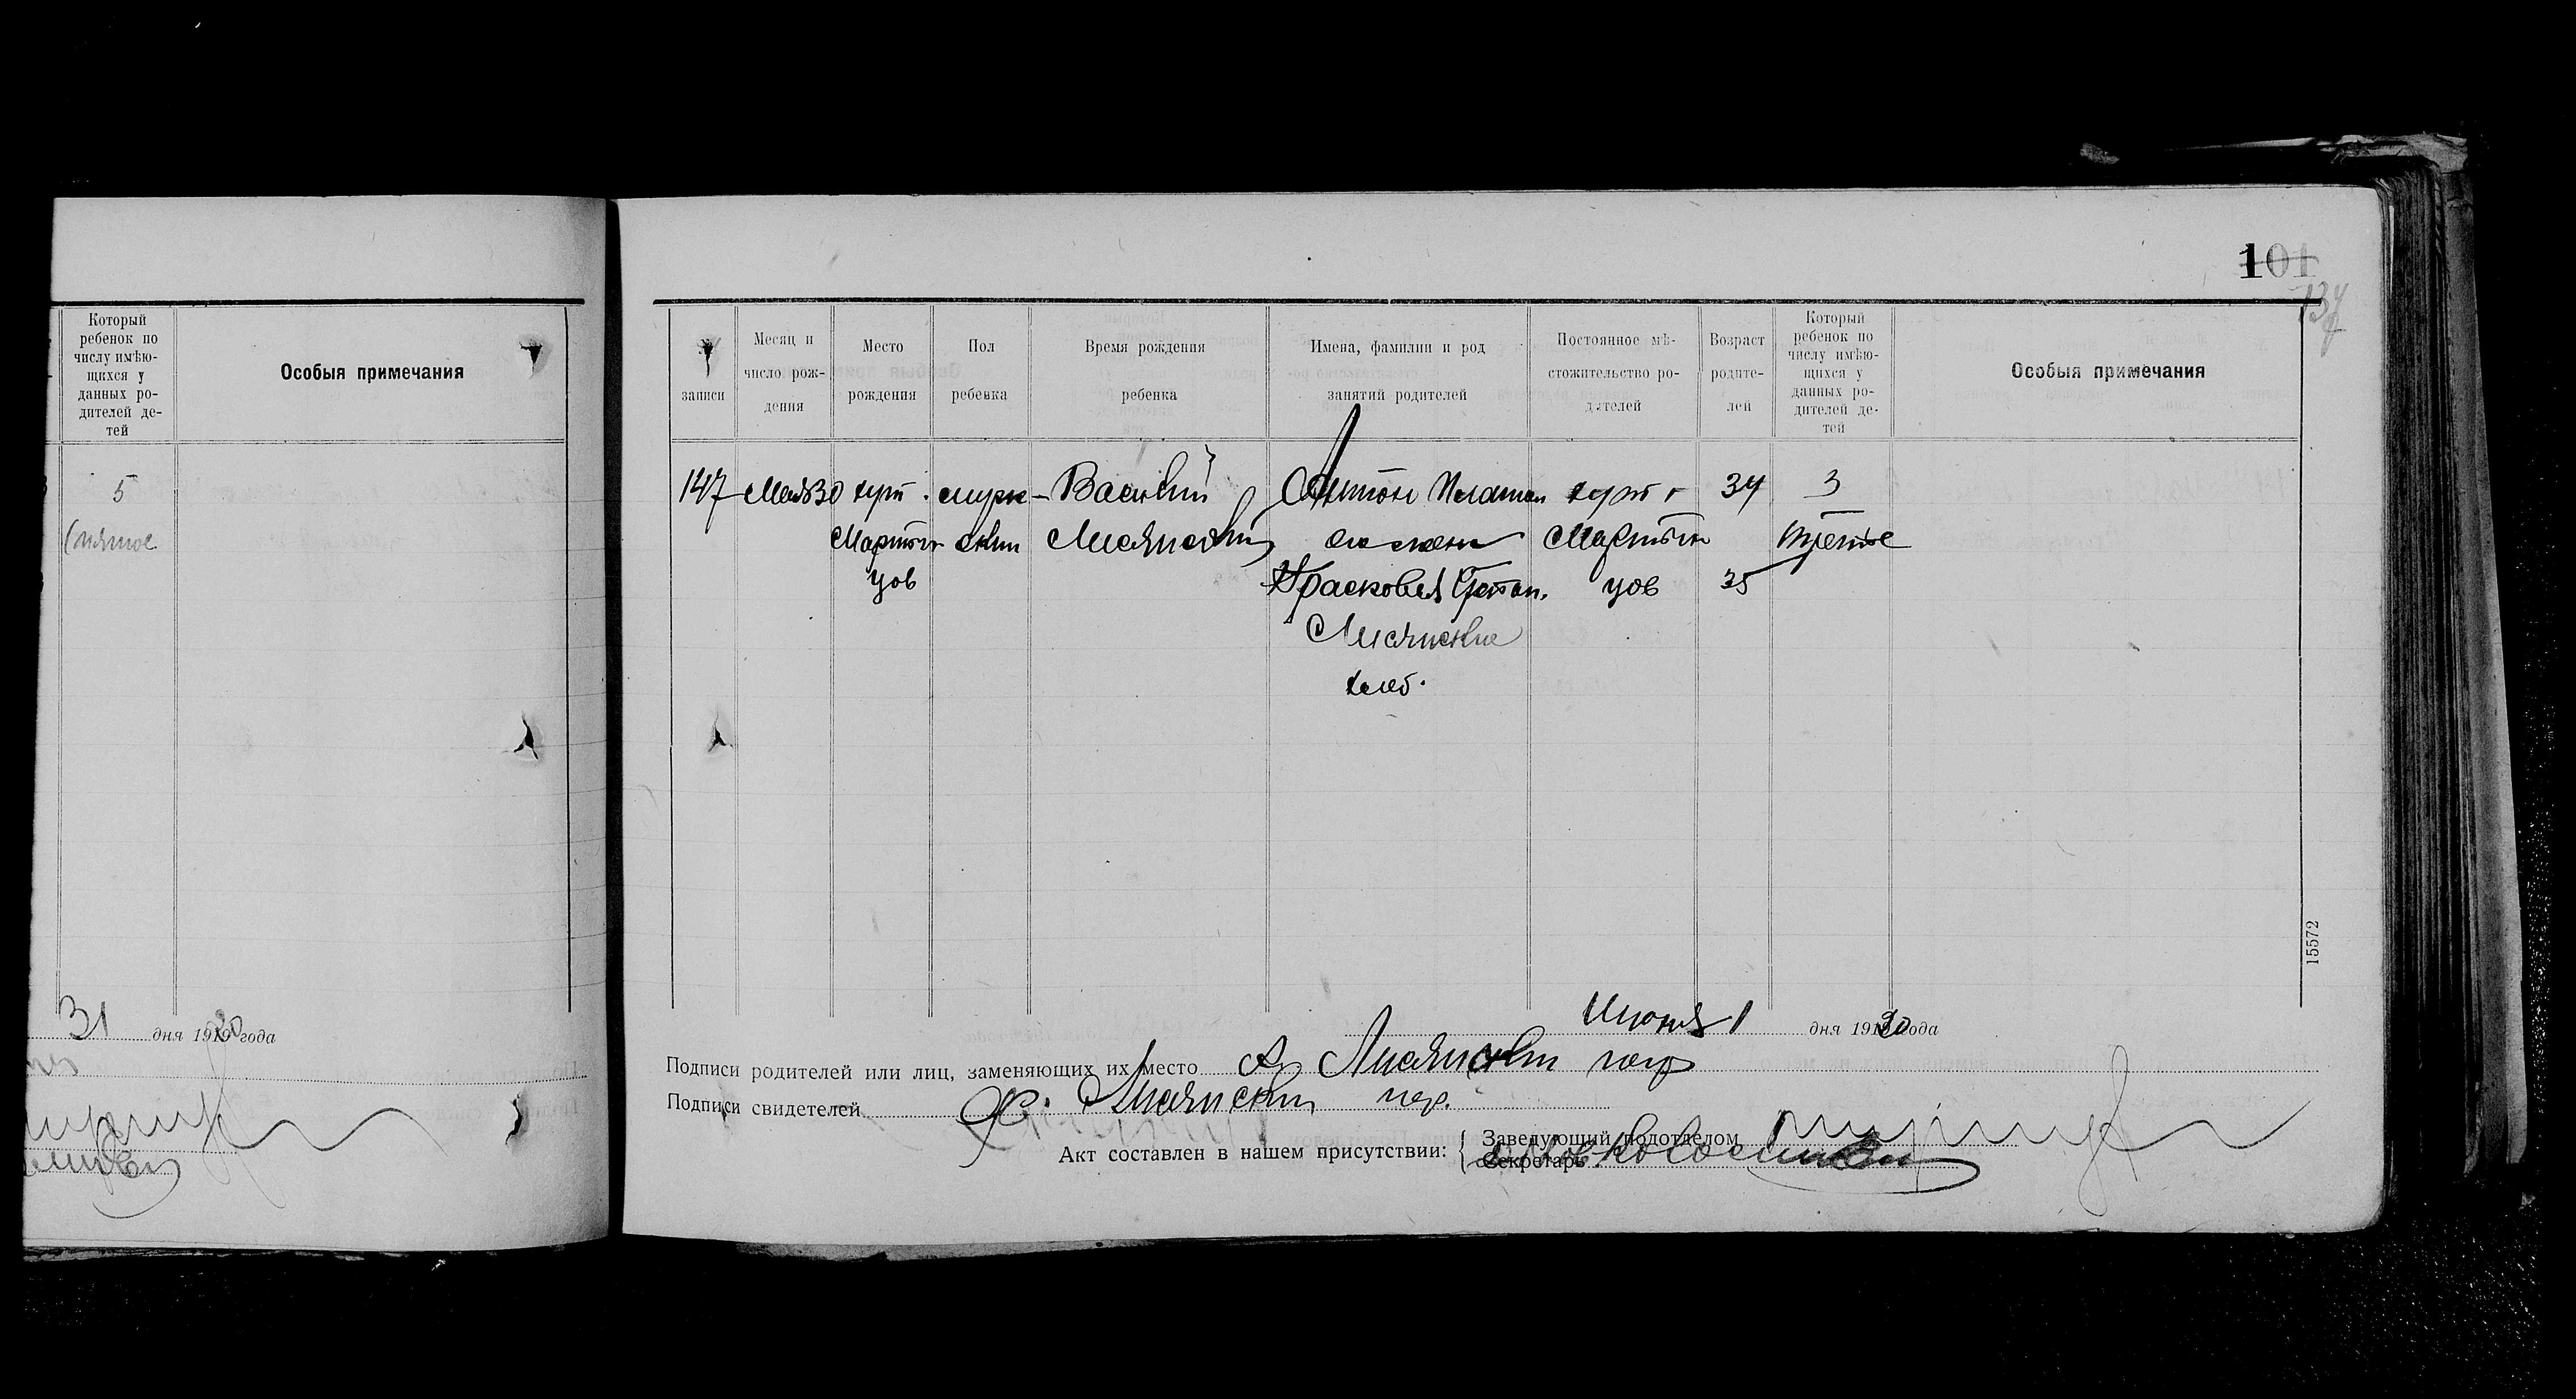 Который
ребенок по
числу имѣю-
щихся у
данных ро-
дителей де-
тей
Особыя примечания
5
(пятое
31 дня 1920 года
101
137
записи
Месяц и
число рож-
дения
Место
рождения
Пол
ребенка
Время рождения
ребенка
Имена, фамилии и род
занятий родителей
Постоянное мѣ-
стожительство ро-
дителей
Возраст
родите-
лей
Который
ребенок по
числу имѣю-
щихся у
данных ро-
дителей де-
тей
Особыя примечания
147 Мая 30 хут. мужс- Василий Антон хут. 34 3
Мартын ский Лисянский Мартын третье
цов Прасковья цов 35
Лисянские
хлеб.
15572
Июня 1 дня 1920 года
Подписи родителей или лиц, заменяющих их место А Лисянский
Подписи свидетелей Лисянский
Акт составлен в нашем присутствии: { Заведующий подотделом
Секретарь